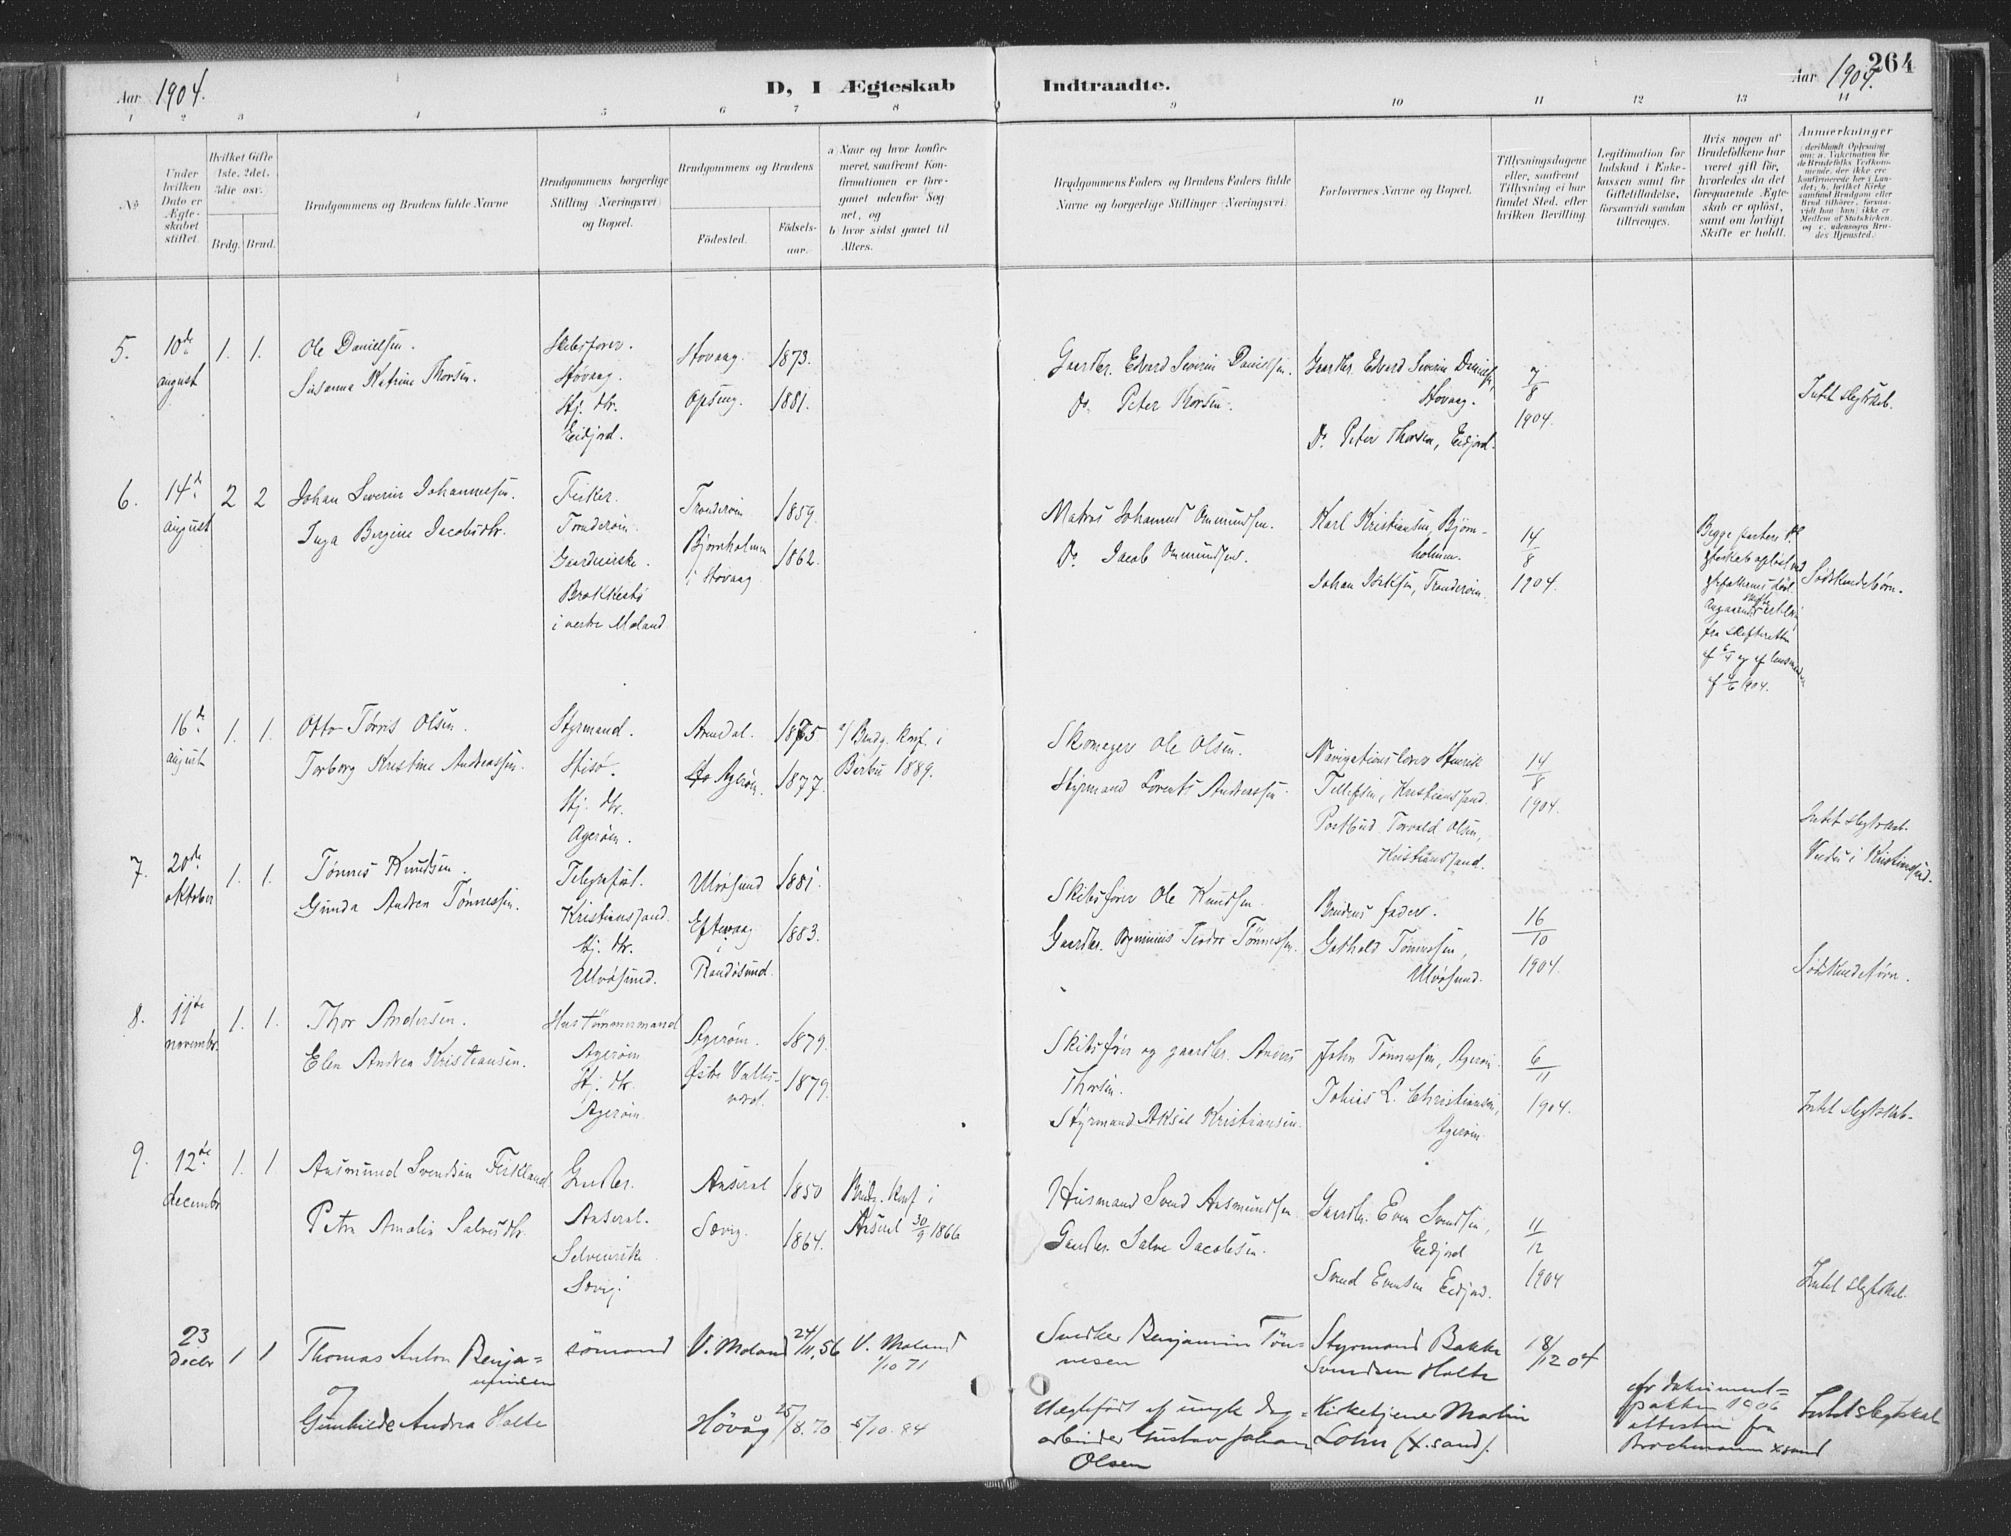 Aar 1904.
D, I Ægteskab Indtraadte.
Aar 1904.
264
1 2 3 4 5 6 7 8 9 10 11 12 13 14
No.
Under hvilken Dato er Ægteskabet stiftet
Hvilket Gifte 1ste, 2det, 3die osv.
Brdg. Brud.
Brudgommens og Brudens fulde Navne
Brudgommens borgerlige Stilling (Næringsvei) og Bopæl.
Brudgommens og Brudens
Fødested.
Fødselsaar.
a) Naar og hvor konfirmeret, saafremt Konfirmationen er foregaaet udenfor Sognet, og
b) hvor sidst gaaet til Alters.
Brudgommens Faders og Brudens Faders fulde Navne og borgerlige Stillinger (Næringsvei)
Forlovernes Navne og Bopæl.
Tillysningsdagene eller, saafremt Tillysning ei har fundet Sted, efter hvilken Bevilling.
Legitimation for Indskud i Enkekassen samt for Giftetilladelse, forsaavidt saadan tiltrænges.
Hvis nogen af Brudefolkene har været gift før, hvorledes da det foregaaende Ægteskab er opløst, samt om lovligt Skifte er holdt.
Anmerkninger
5. 10de august 1. 1.
Ole Danielsen.
Susanna Katrine Thorsen.
Skibsfører.
Høvaag.
Hj. dtr.
Eidjord.
Høvaag. 1873.
1881.
Gaardbr. Edvard Severin Danielsen.
Do. Peter Thorsen.
Gaardbr. Edvard Severin Danielsen,
Høvaag.
Do. Peter Thorsen, Eidjord.
7/8 1904.
Intet slegtskab.
6. 14de august 2 2
Johan Severin Johannessen.
Inga Bergine Jacobsdtr.
Fisker.
Trønderøin.
Gaardeierske.
Brækkestø
i vestre Moland.
Trønderøin 1859.
Bjørnholmen
i Høvaag 1862.
Matros Johannes Ommundsen.
Do. Jacob Ommundsen.
Karl Kristiansen, Bjørnholmen.
14/8 1904.
Begge parters
1904.
Sødskendebørn.
16de august 1. 1.
Otto Tørris Olsen.
Torborg Kristine Andreassen.
Styrmand.
Hisø.
Hj. dtr.
Agerøin.
Arendal. 1875
Agerøin. 1877.
a/ Brudg. konf. i
Barbu 1889.
Skomager Ole Olsen.
Styrmand Lorents Andreassen
Navigationslærer Henrik
Tellefsen, Kristianssand.
Postbud Torvald Olsen,
Kristianssand.
14/8 1904.
Intet slegtskab.
Viede i Kristianssand.
7. 20de oktober 1. 1.
Tønnes Knudsen.
Gunda Andrea Tønnessen.
Kristianssand.
Hj. dtr.
Ulvøsund.
Ulvøsund 1881.
Eftevaag
i
Randøsund. 1883.
Skibsfører Ole Knudsen.
Gaardbr. Teodor Tønnessen.
Brudens fader.
Gothold Tønnessen,
Ulvøsund.
16/10 1904.
Sødskendebørn.
8. 11te november. 1. 1.
Thor Andersen.
Elen Andrea Kristiansen.
Hustømmermand
Agerøin
Hj. dtr.
Agerøin.
Agerøin. 1879.
Østre Vallesværd. 1879.
Skibsfører og gaardbr. Anders
Thorsen.
Styrmand Aksel Kristiansen.
John Tønnesen, Agerøin.
Tobias L. Christiansen,
Agerøin.
6/11 1904.
Intet slegtskab.
9. 12te decembr 1. 1
Aasmund Svendsen Fiskland
Petra Amalie Salvesdtr.
Gaardbr.
Aaseral.
Selveierske
Sævig.
Aaseral 1850
Sævig. 1864.
Brudg. konf i
Aaseral 30/9 1866
Husmand Svend Aasmundsen
Gaardbr. Salve Jacobsen.
Gaardbr. Even Svendsen,
Eidjord
Svend Evensen Eidjord.
11/12 1904
Intet slegtskab.
23 Decbr 1 1
Thomas Anton Benjaminsen
og
Gunhilde Andrea Holte
sømand
V. Moland 24/11, 56
V. Moland 1/10 71
Høvåg 25/8. 70
5/10. 84
Snedker Benjamin Tønnesen
Uægtefødt af ungk. dagarbeider Gustav Johan Olsen
Styrmand Bakke
Svendsen Holte
Kirketjener Martin
Lohn (X.sand).
18/12 04
cfr dokumentpakken 1906
attestin fra
Brochmann Xsand
Intet slegtskab